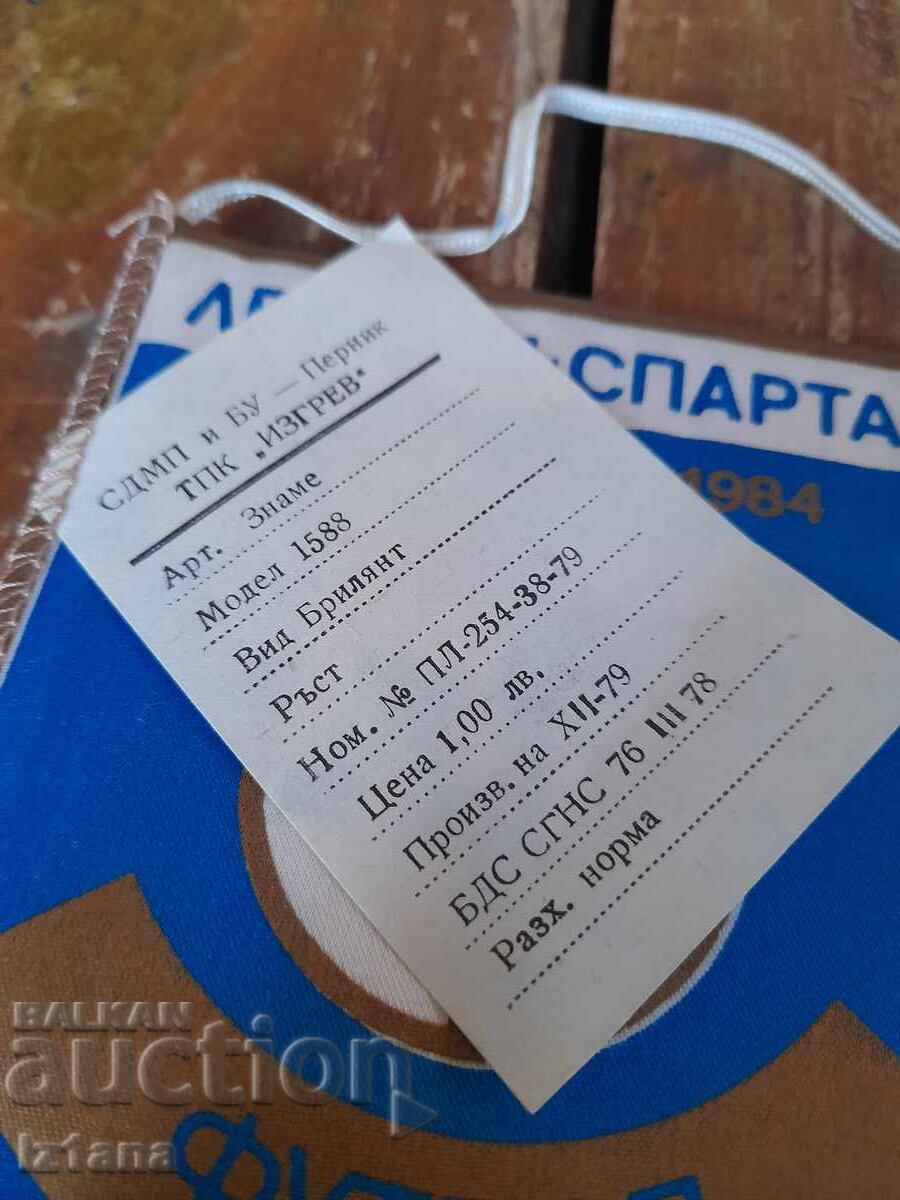 СДМП и БУ — Перник
ТПК „ИЗГРЕВ"
Арт. Знаме
Модел 1588
Вид Брилянт
Ръст
Ном. № ПЛ-254-38-79
Цена 1,00 лв.
Произв. на XII-79
БДС СГНС 76 III 78
Разх. норма
СПАРТА
1984
BALKAN
auction
Iztana